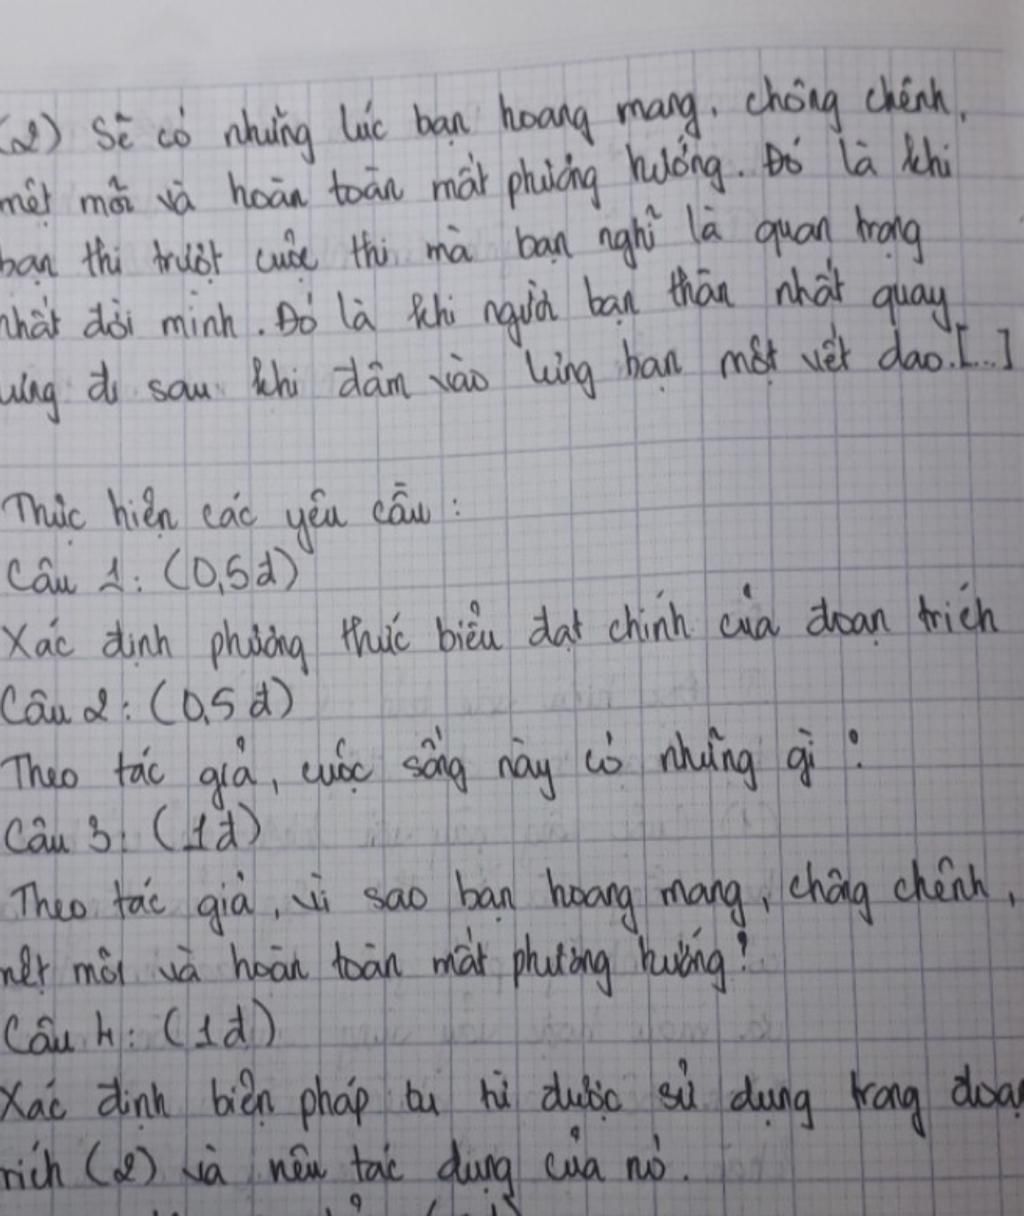 (2) Sẽ có những lúc bạn hoang mang, chông chênh,
mệt mỏi và hoàn toàn mất phương hướng. Đó là khi
bạn thi trượt cuộc thi mà bạn nghĩ là quan trọng
nhất đời mình. Đó là khi người bạn thân nhất quay
lưng đi sau khi đâm vào lưng bạn một vết dao.[...]
Thực hiện các yêu cầu:
Câu 1: (0,5đ)
Xác định phương thức biểu đạt chính của đoạn trích
Câu 2: (0,5đ)
Theo tác giả, cuộc sống này có những gì?
Câu 3: (1đ)
Theo tác giả, vì sao bạn hoang mang, chông chênh,
mệt mỏi và hoàn toàn mất phương hướng?
Câu 4: (1đ)
Xác định biện pháp tu từ được sử dụng trong đoạn
trích (2) và nêu tác dụng của nó.